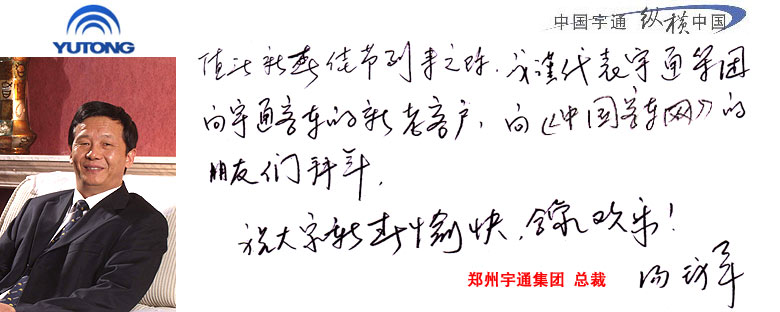 YUTONG
中国宇通 纵横中国
值此新春佳节到来之际，我谨代表宇通集团
向宇通客车的新老客户，向《中国客车网》的
朋友们拜年，
祝大家新春愉快，合家欢乐！
郑州宇通集团 总裁
汤玉祥